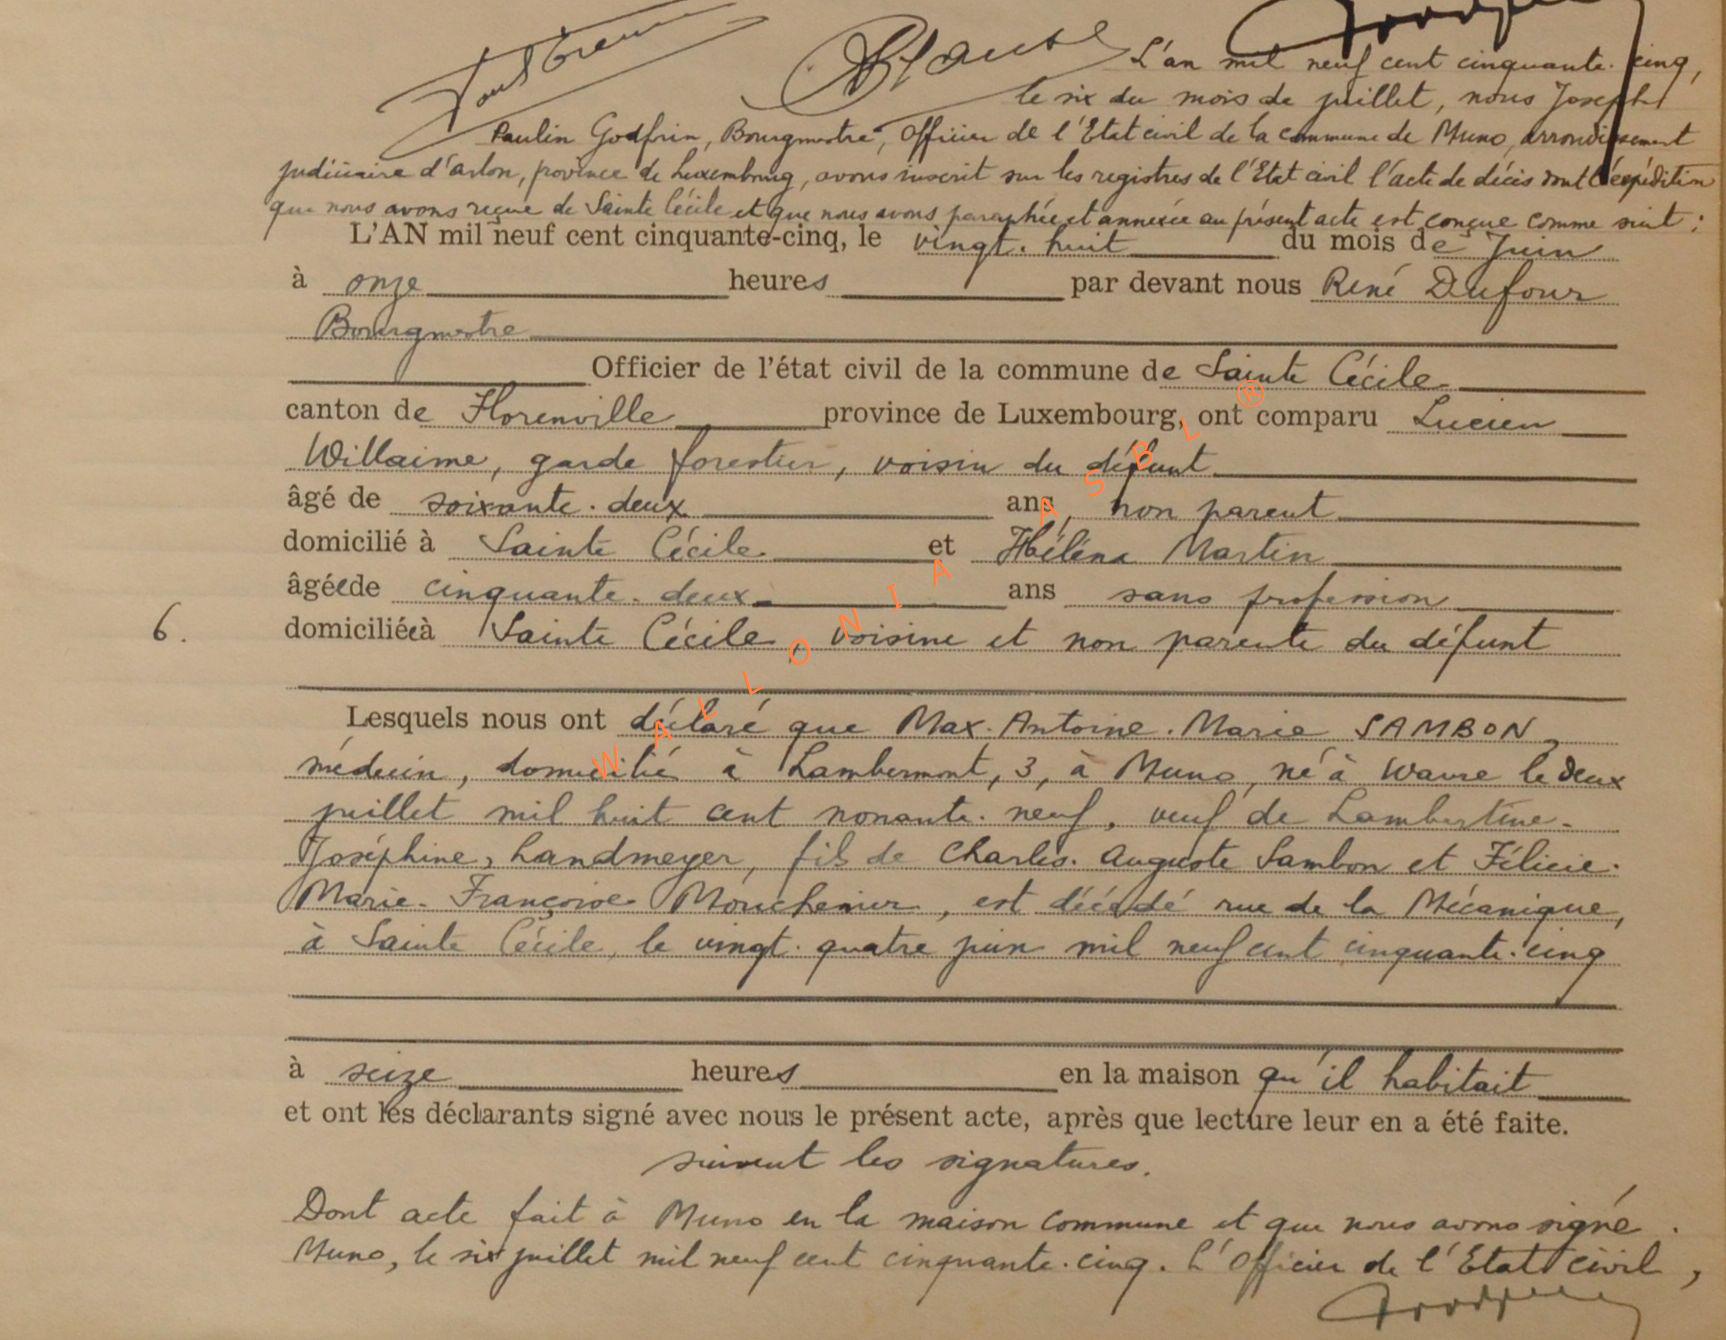 L'an mil neuf cent cinquante-cinq,
le six du mois de juillet, nous Joseph
Paulin Godfrin, Bourgmestre, Officier de l'Etat civil de la commune de Muno, arrondissement
judiciaire d'Arlon, province de Luxembourg, avons inscrit sur les registres de l'Etat civil l'acte de décès dont l'expédition
que nous avons reçue de Sainte Cécile et que nous avons paraphée et annexée au présent acte est conçue comme suit :
L'AN mil neuf cent cinquante-cinq, le vingt-huit du mois de Juin
à onze heures par devant nous René Dufour
Bourgmestre
Officier de l'état civil de la commune de Sainte Cécile
canton de Florenville province de Luxembourg, ont comparu Lucien
Willaime, garde forestier, voisin du défunt
âgé de soixante-deux ans, non parent
domicilié à Sainte Cécile et Héléna Martin
âgée de cinquante-deux ans sans profession
6. domiciliée à Sainte Cécile, voisine et non parente du défunt
Lesquels nous ont déclaré que Max-Antoine-Marie SAMBON,
médecin, domicilié à Lambermont, 3, à Muno, né à Wavre le deux
juillet mil huit cent nonante-neuf, veuf de Lambertine-
Joséphine, Landmeyer, fils de Charles-Auguste Sambon et Félicie-
Marie-Françoise, est décédé rue de la Mécanique,
à Sainte Cécile, le vingt-quatre juin mil neuf cent cinquante-cinq
à seize heures en la maison qu'il habitait
et ont les déclarants signé avec nous le présent acte, après que lecture leur en a été faite.
suivent les signatures.
Dont acte fait à Muno en la maison commune et que nous avons signé.
Muno, le six juillet mil neuf cent cinquante-cinq. L'Officier de l'Etat civil,
WALLONIA ASBL ®